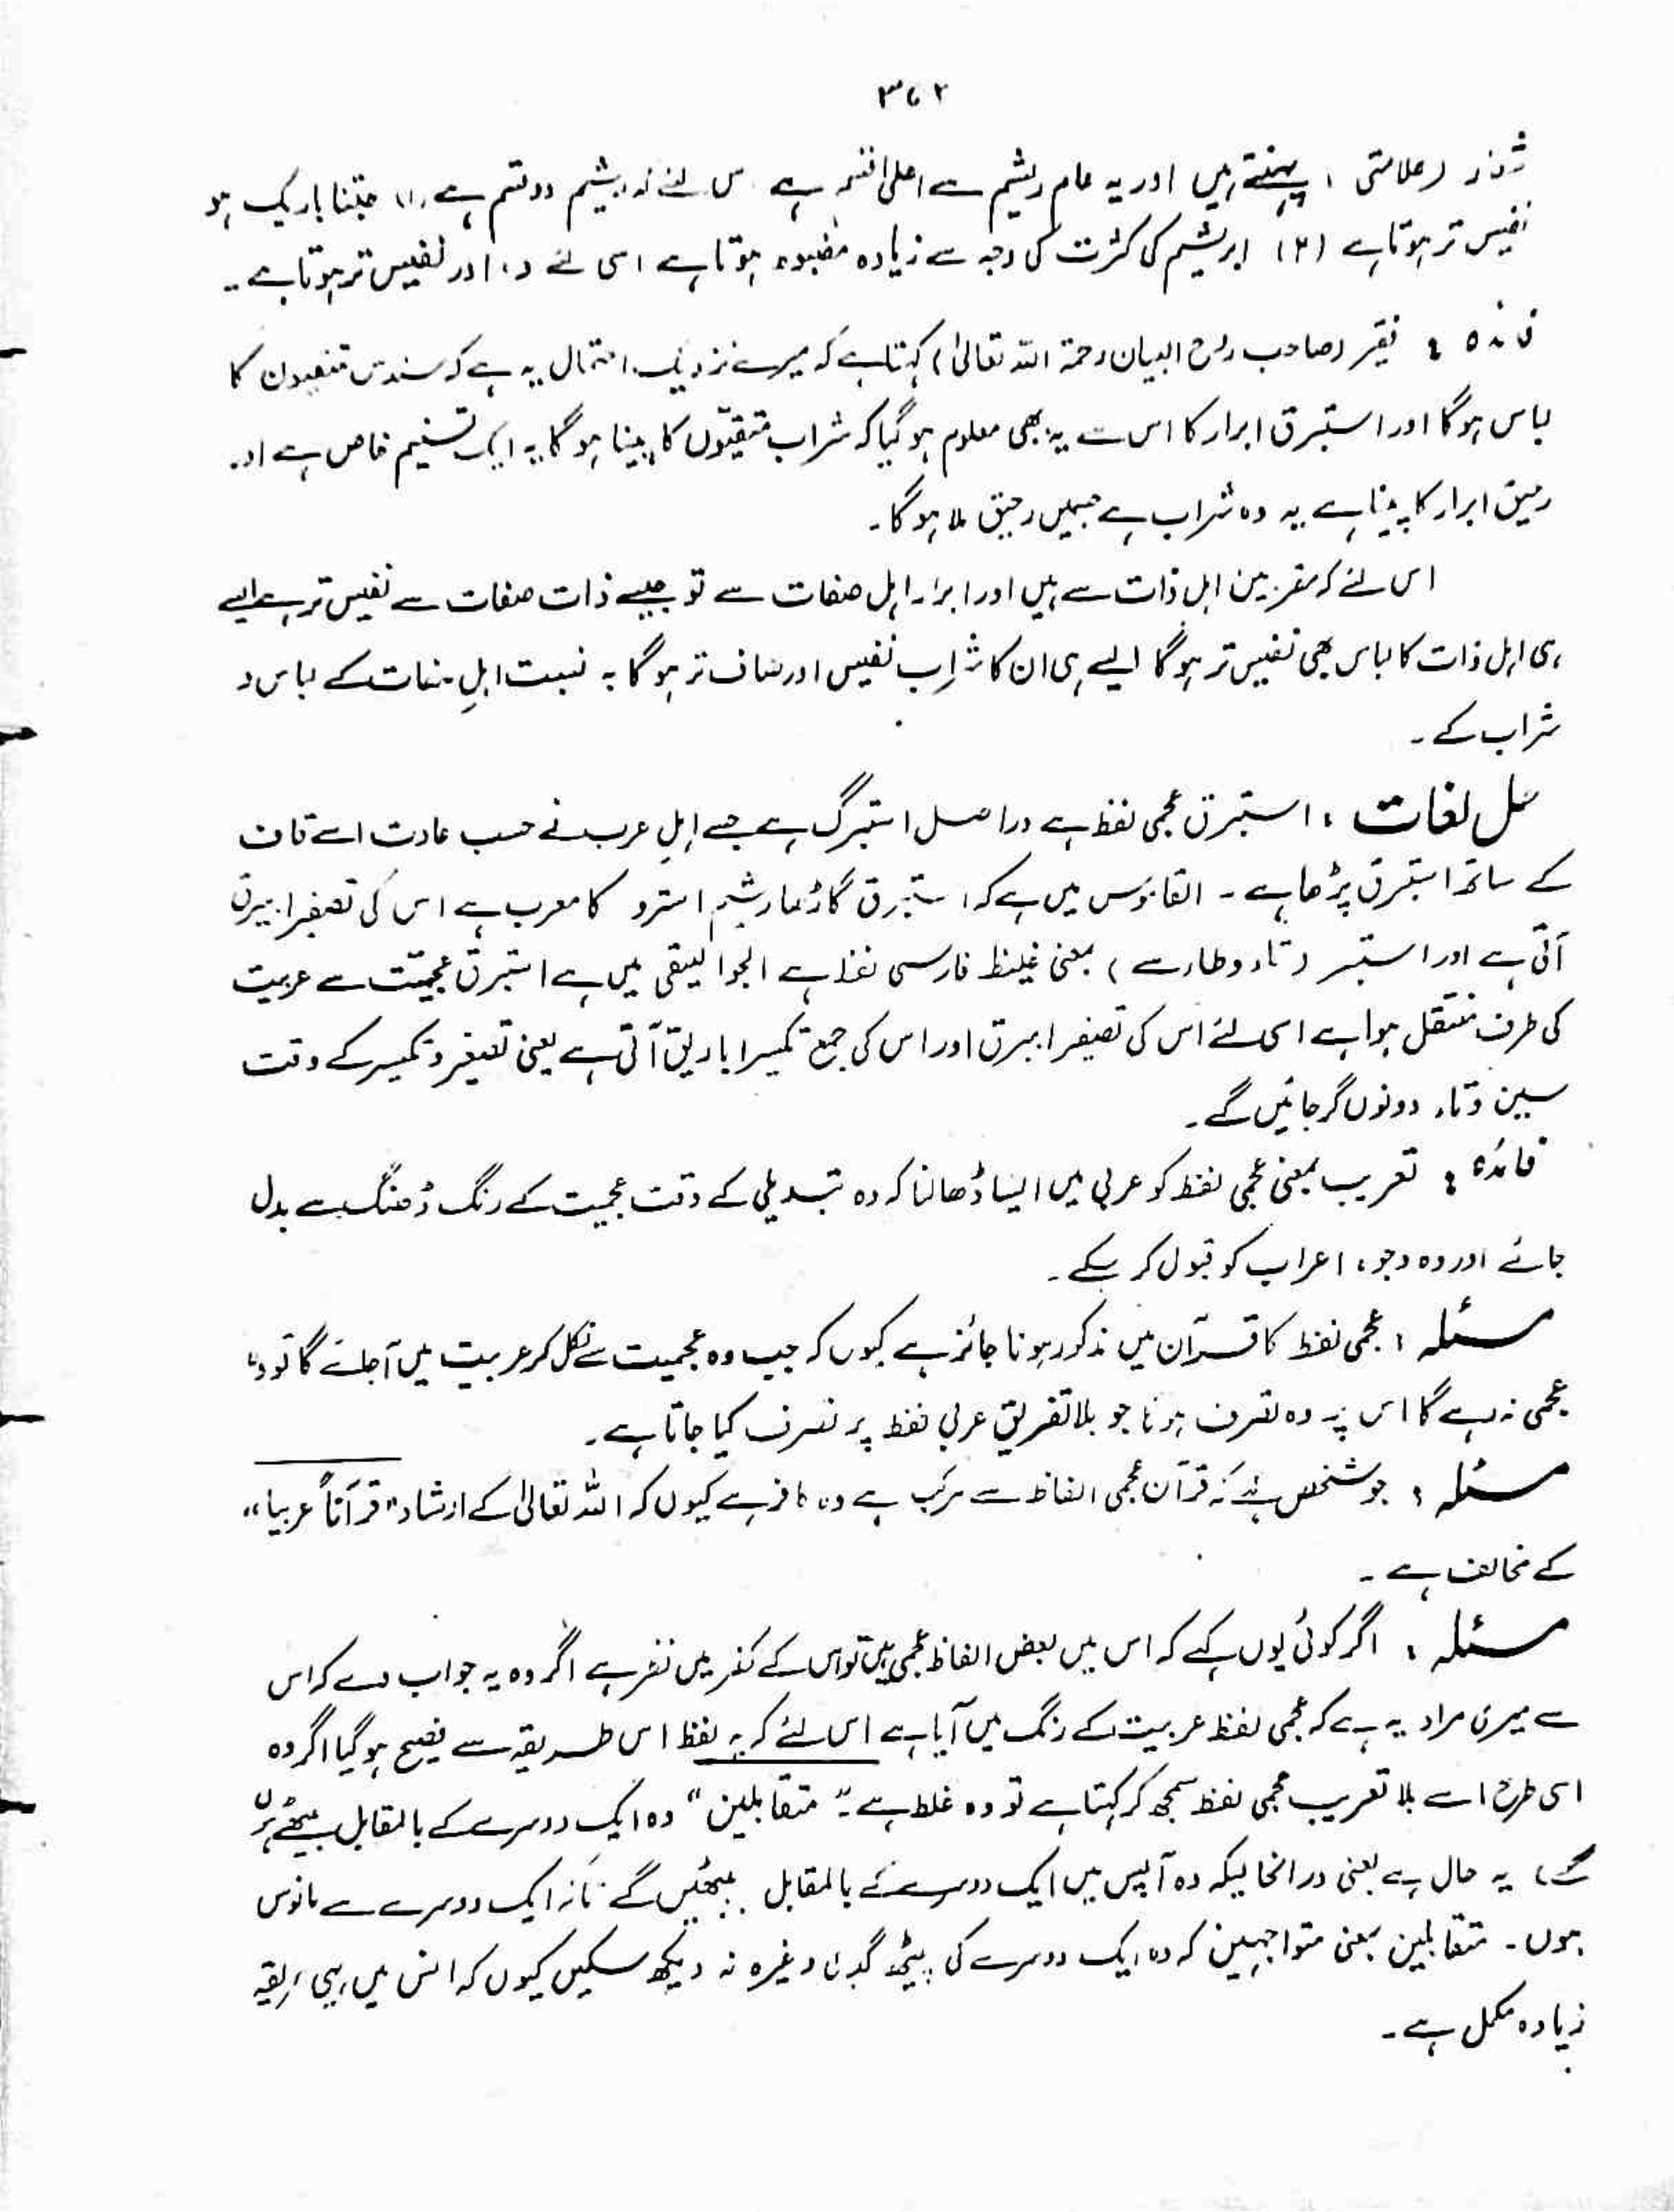 ۳۷۲
(علامتی) پہنتے ہیں اور یہ عام ریشم سے اعلیٰ قسم ہے اس لئے کہ ریشم دو قسم ہے (۱) جتنا باریک ہو
نفیس تر ہوتا ہے (۲) ابریشم کی کثرت کی وجہ سے زیادہ مضبوط ہوتا ہے اسی لئے وہ اور نفیس تر ہوتا ہے۔
فائدہ : فقیر (صاحب روح البیان رحمۃ اللہ تعالیٰ) کہتا ہے کہ میرے نزدیک احتمال یہ ہے کہ سندس کا
لباس ہوگا اور استبرق ابرار کا اس سے یہ بھی معلوم ہو گیا کہ شراب کا پینا ہوگا یہ ایک تسنیم خاص ہے اور
رحیق ابرار کا پینا ہے یہ وہ شراب ہے جسمیں رحیق ملا ہوگا۔
اس لئے کہ مقربین اہل ذات سے ہیں اور ابرار اہل صفات سے تو جیسے ذات صفات سے نفیس تر ہے ایسے
ہی اہل ذات کا لباس بھی نفیس تر ہوگا ایسے ہی ان کا شراب نفیس اور صاف تر ہوگا بہ نسبت اہلِ صفات کے لباس و
شراب کے۔
حل لغات : استبرق عجمی لفظ ہے دراصل استبرگ ہے جسے اہلِ عرب نے حسب عادت اسے قاف
کے ساتھ استبرق پڑھا ہے۔ القاموس میں ہے کہ استبرق گاڑھا ریشم استرو کا معرب ہے اس کی تصغیر ابیرق
آتی ہے اور استبر (تاء و طاء سے) بمعنی غلیظ فارسی لفظ ہے الجوالیقی میں ہے استبرق عجمیّت سے عربیت
کی طرف منتقل ہوا ہے اسی لئے اس کی تصغیر ابیرق اور اس کی جمع تکسیر اباریق آتی ہے یعنی تصغیر و تکسیر کے وقت
سین و تاء دونوں گر جائیں گے۔
فائدہ : تعریب بمعنی عجمی لفظ کو عربی میں ایسا ڈھالنا کہ وہ تبدیلی کے وقت عجمیت کے رنگ ڈھنگ سے بدل
جائے اور وہ وجوہ اعراب کو قبول کر سکے۔
مسئلہ : عجمی لفظ کا قرآن میں مذکور ہونا جائز ہے کیوں کہ جب وہ عجمیت سے نکل کر عربیت میں آ جائے گا تو وہ
عجمی نہ رہے گا اس پر وہ تصرف ہونا جو بلا تفریق عربی لفظ پر تصرف کیا جاتا ہے۔
مسئلہ : جو شخص کہے کہ قرآن عجمی الفاظ سے مرکب ہے وہ کافر ہے کیوں کہ اللہ تعالیٰ کے ارشاد "قرآناً عربیا"
کے مخالف ہے۔
مسئلہ : اگر کوئی یوں کہے کہ اس میں بعض الفاظ عجمی ہیں تو اس کے کفر میں نظر ہے اگر وہ یہ جواب دے کہ اس
سے میری مراد یہ ہے کہ عجمی لفظ عربیت کے رنگ میں آیا ہے اس لئے کہ یہ لفظ اس طریقہ سے فصیح ہو گیا اگر وہ
اسی طرح اسے بلا تعریب عجمی لفظ سمجھ کر کہتا ہے تو وہ غلط ہے۔ "متقابلین" وہ ایک دوسرے کے بالمقابل بیٹھے ہوں
گے) یہ حال ہے یعنی درانحالیکہ وہ آپس میں ایک دوسرے کے بالمقابل بیٹھیں گے تاکہ ایک دوسرے سے مانوس
ہوں۔ متقابلین بمعنی متواجہین کہ وہ ایک دوسرے کی پیٹھ گردن وغیرہ نہ دیکھ سکیں کیوں کہ انس میں یہی طریقہ
زیادہ مکمل ہے۔